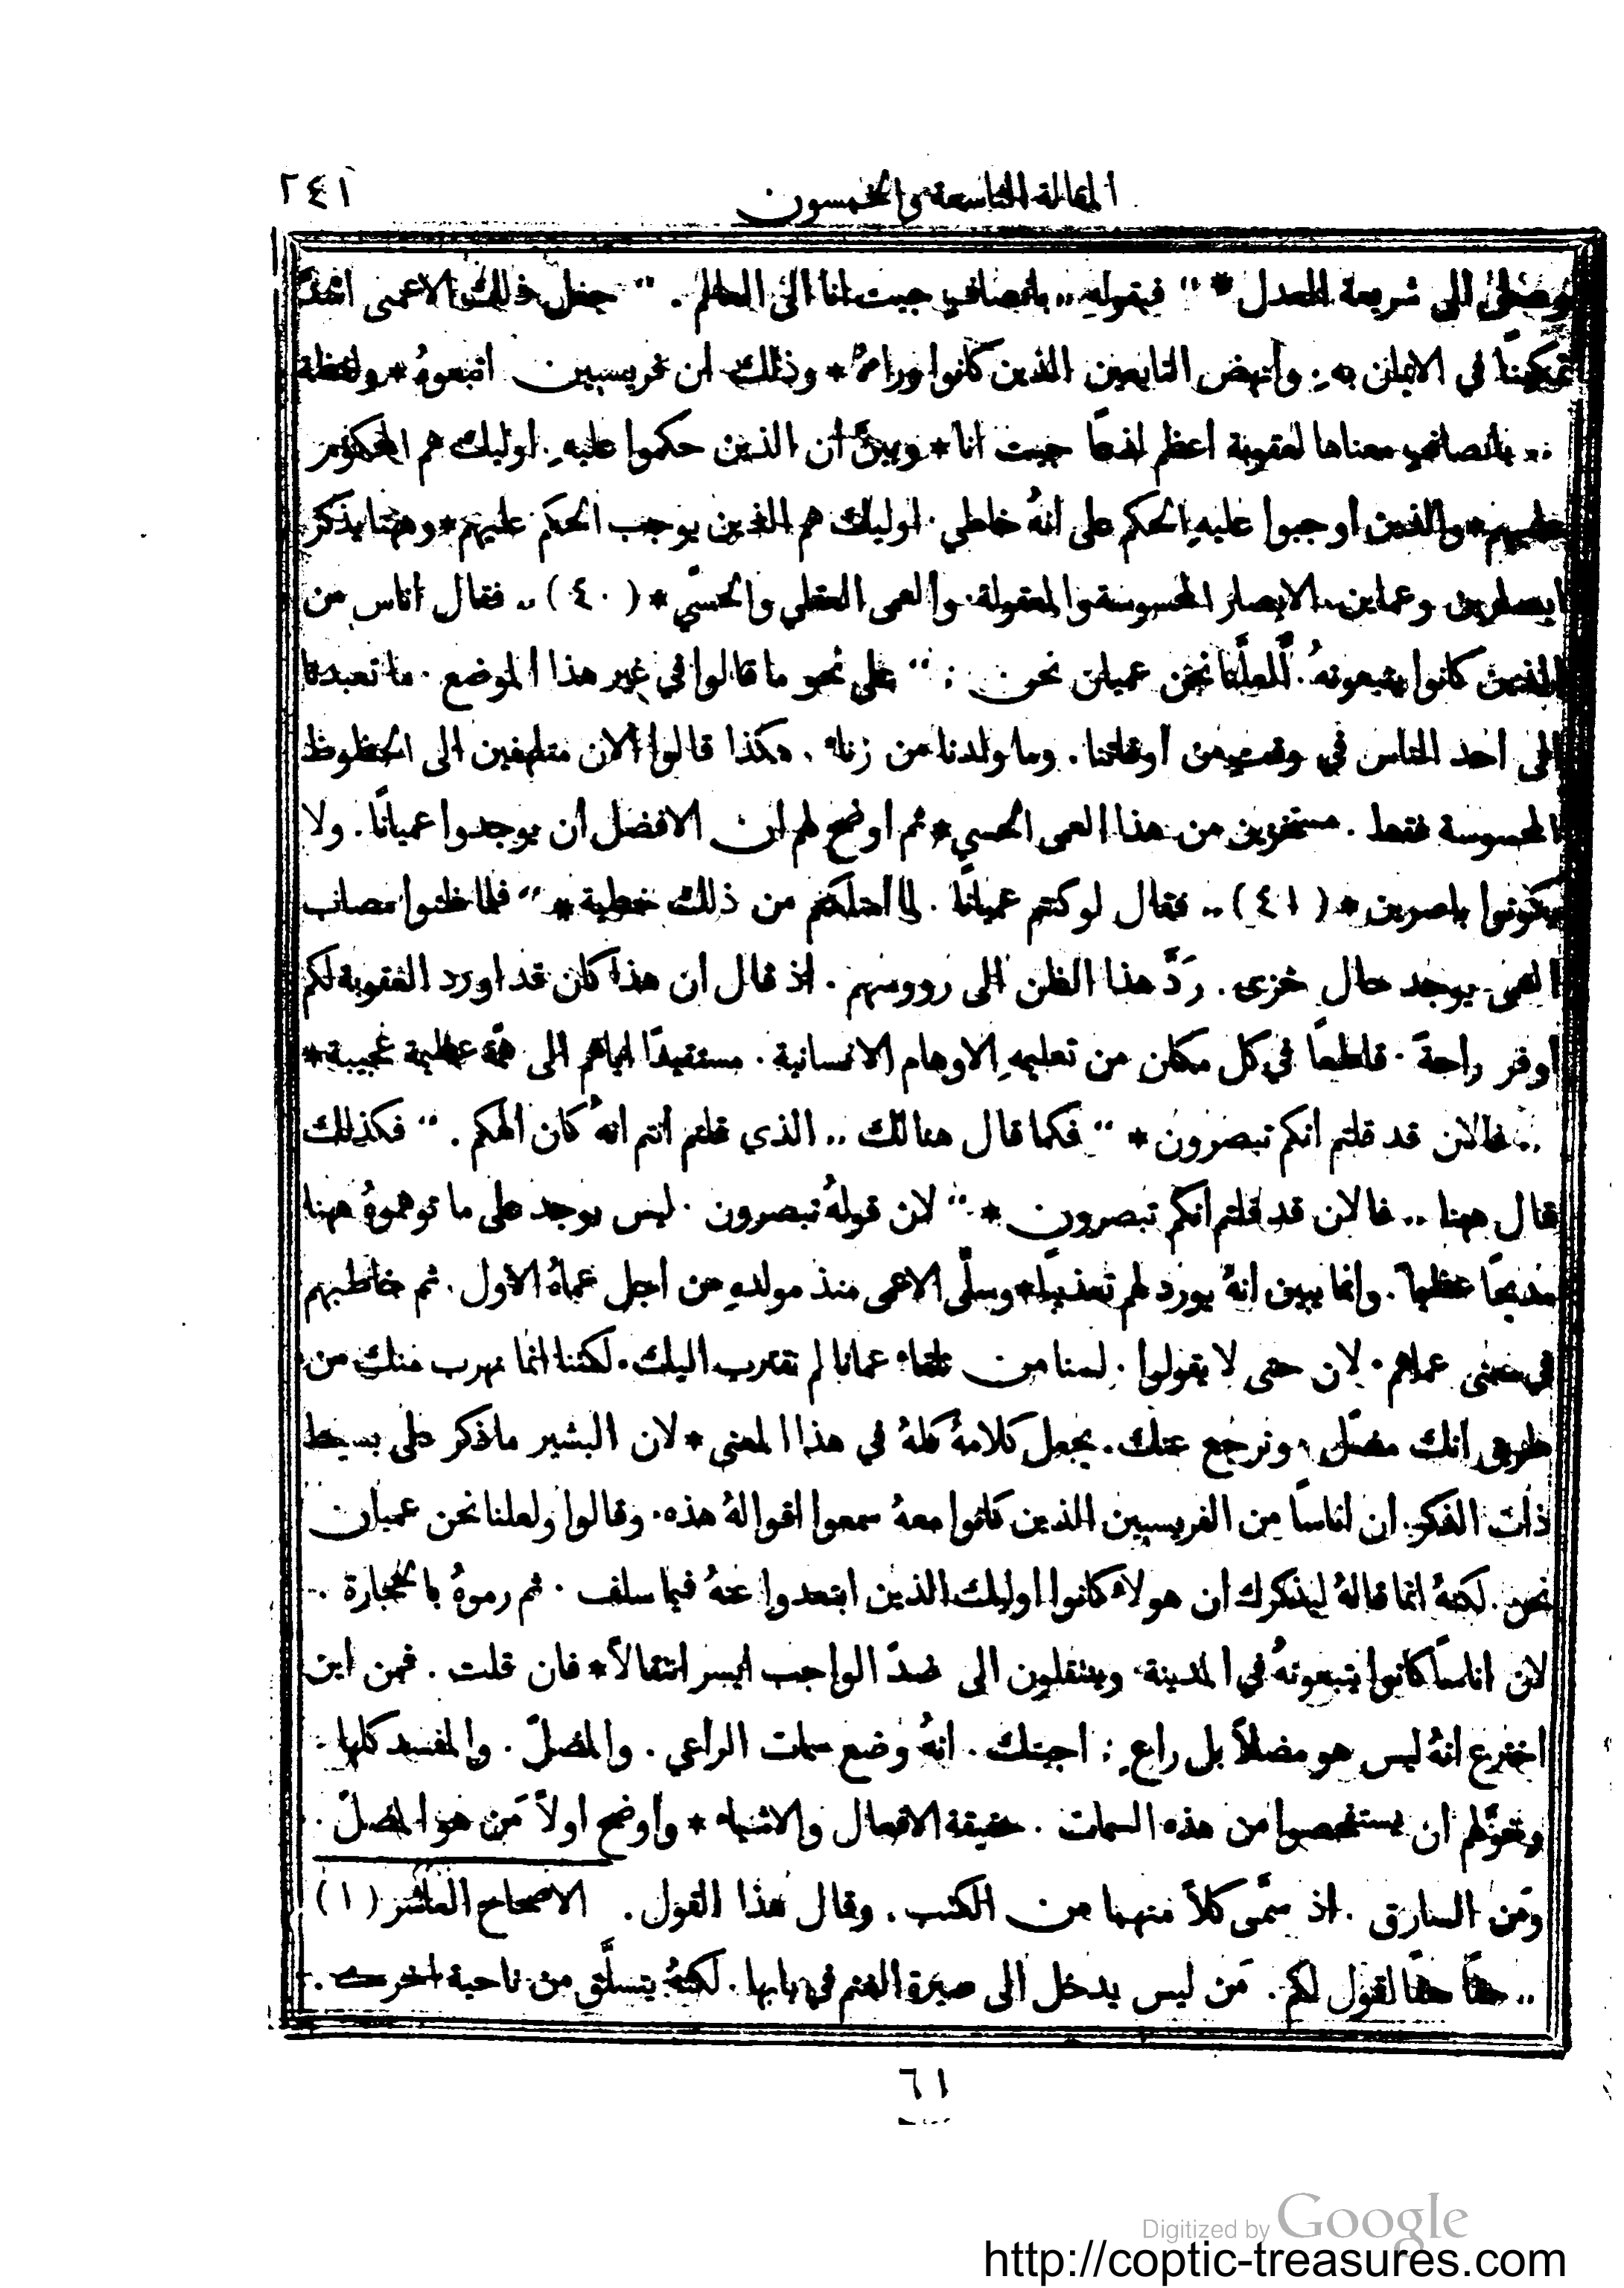 المقالة التاسعة والخمسون
٢٤١
الى شريعة العدل * “ فبقولهِ .. بانصافٍ جيت انا الى العالم . “ جعل ذلك الاعمى اشدَّ
تمكينًا في الايمان بهِ . وانهض التابعين الذين كانوا وراهُ * وذلك ان فريسيين اتبعوهُ * ولفظة
.. بانصافٍ معناها لعقوبة اعظم انصافًا جيت انا * وبيَّن ان الذين حكموا عليهِ . اوليك هم المحكوم
عليهم * والذين اوجبوا عليهِ الحكم على انهُ خاطي . اوليك هم الذين يوجب الحكم عليهم * وههنا يذكر
ابصارين وعماين . الابصار المحسوسة والمعقولة . والعمى العقلي والحسيّ * ( ٤٠ ) .. فقال اناس من
الذين كانوا يتبعونهُ . ألعلَّنا نحن عميان نحن : “ على نحو ما قالوا في غير هذا الموضع . ما تعبدنا
الى احد الناس في وقتٍ من اوقاتنا . وما ولدنا من زناء . هكذا قالوا الان متلهفين الى الحظوظ
المحسوسة فقط . مستخزين من هذا العمى الحسي * ثم اوضح لهم ان الافضل ان يوجدوا عميانًا . ولا
يكونوا باصرين * ( ٤١ ) .. فقال لو كنتم عميانًا . لما امتلكتم من ذلك خطية * “ فلما ظنوا مصاب
العمى يوجد حال خزى . رَدَّ هذا الظن الى رووسهم . اذ قال ان هذا كان قد اورد العقوبة لكم
اوفر راحةً . قاطعًا في كل مكان من تعليمهِ الاوهام الانسانية . مستقيدًا اياهم الى همَّة عظيمة عجيبة *
.. فالان قد قلتم انكم تبصرون * “ فكما قال هنالك .. الذي قلتم انتم انهُ كان الهكم . “ فكذلك
قال ههنا .. فالان قد قلتم انكم تبصرون * “ لان قولهُ تبصرون . ليس يوجد على ما توهموهُ ههنا
مديحًا عظيمًا . وانما يبين انهُ يورد لهم تعذيبًا * وسلَّى الاعمى منذ مولدهِ من اجل عماهُ الاول . ثم خاطبهم
في معنى عماهم . لان حتى لا يقولوا . لسنا من تلقاء عمانا لم نقترب اليك . لكننا انما نهرب منك من
طريق انك مضلّ ونرجع عنك . يجعل كلامهُ كلهُ في هذا المعنى * لان البشير ما ذكر على بسيط
ذات الفكر . ان اناسًا من الفريسيين الذين كانوا معهُ سمعوا اقوالهُ هذه . وقالوا ولعلنا نحن عميان
نحن . لكنهُ انما قالهُ ليذكرك ان هولاء كانوا اوليك الذين ابتعدوا عنهُ فيما سلف . ثم رموهُ بالحجارة .
لان اناسًا كانوا يتبعونهُ في المدينة . وينتقلون الى ضدّ الواجب ايسر انتقالاً * فان قلت . فمن اين
اخترع انهُ ليس هو مضلاً بل راعٍ : اجبتك . انهُ وضع سمات الراعي . والمضلّ . والمفسد كلها .
وخوَّلهم ان يستفحصوا من هذه السمات . حقيقة الافعال والاشياء * واوضح اولاً مَن هو المضلّ .
ومَن السارق . اذ سمَّى كلاً منهما من الكتب . وقال هذا القول . الاصحاح العاشر ( ١ )
.. حقًّا حقًّا اقول لكم . مَن ليس يدخل الى صيرة الغنم في بابها . لكنهُ يتسلَّق من ناحية اخرى .
٦١
Digitized by Google
http://coptic-treasures.com